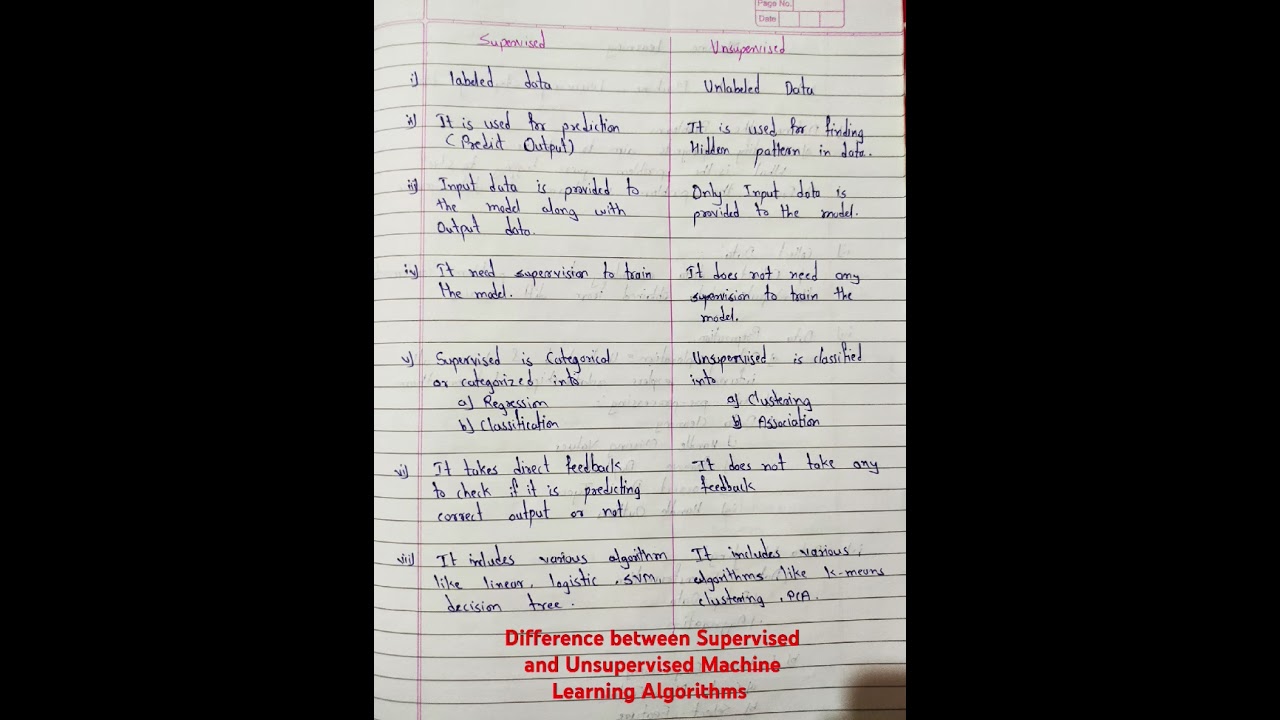 Page No.
Date
Supervised
Unsupervised
i) labeled data
Unlabeled Data
ii) It is used for prediction
(Predit Output)
It is used for finding
Hidden pattern in data.
iii) Input data is provided to
the model along with
Output data.
Only Input data is
provided to the model.
iv) It need supervision to train
the model.
It does not need any
supervision to train the
model.
v) Supervised is Categorical
or categorized into
a) Regression
b) Classification
Unsupervised is classified
into
a) Clustering
b) Association
vi) It takes direct feedback
to check if it is predicting
correct output or not
It does not take any
feedback
vii) It includes various algorithm
like linear, logistic, SVM,
decision tree.
It includes various,
algorithms, like k-means
clustering, PCA.
Difference between Supervised
and Unsupervised Machine
Learning Algorithms